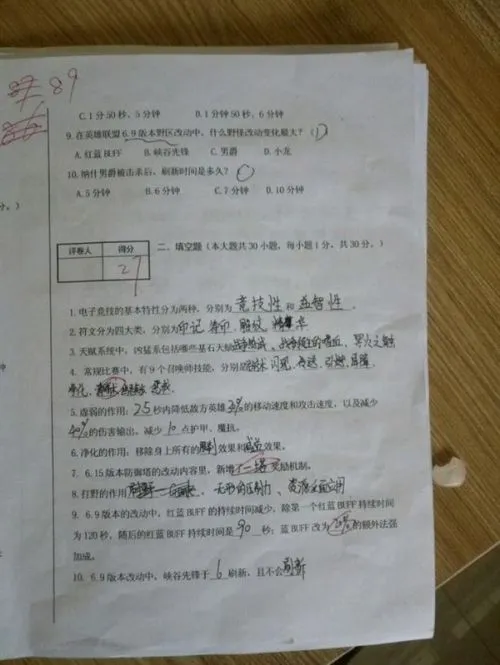 89
C. 1分50秒，5分钟 D. 1分钟50秒，6分钟
9. 在英雄联盟6.9版本野区改动中，什么野怪改动变化最大？（D）
A. 红蓝BUFF B. 峡谷先锋 C. 男爵 D. 小龙
10. 纳什男爵被击杀后，刷新时间是多久？（
A. 5分钟 B. 6分钟 C. 7分钟 D. 10分钟
分。）
评卷人 得分
27
二、填空题（本大题共30小题，每小题1分，共30分。）
1. 电子竞技的基本特性分为两种，分别为 竞技性 和 益智性 .
2. 符文分为四大类，分别为印记、符印、雕纹、精华
3. 天赋系统中，凶猛系包括哪些基石天赋战争热诚、战争领主的嗜血、
4. 常规比赛中，有9个召唤师技能，分别是治疗术 闪现、传送、引燃、屏障、
净化、
5. 虚弱的作用：2.5秒内降低敌方英雄30%的移动速度和攻击速度，以及减少
40%的伤害输出，减少 10 点护甲、魔抗。
6. 净化的作用，移除身上所有的 效果和 效果。
7. 6.15版本防御塔的改动内容里，新增 一塔 奖励机制。
8. 打野的作用 、无形的压制力、
9. 6.9版本的改动中，红蓝BUFF的持续时间减少，除第一个红蓝BUFF持续时间
为120秒，随后的红蓝BUFF持续时间是 90 秒；蓝BUFF改为 的额外法强
加成。
10. 6.9版本改动中，峡谷先锋于 6 刷新，且不会刷新
钟